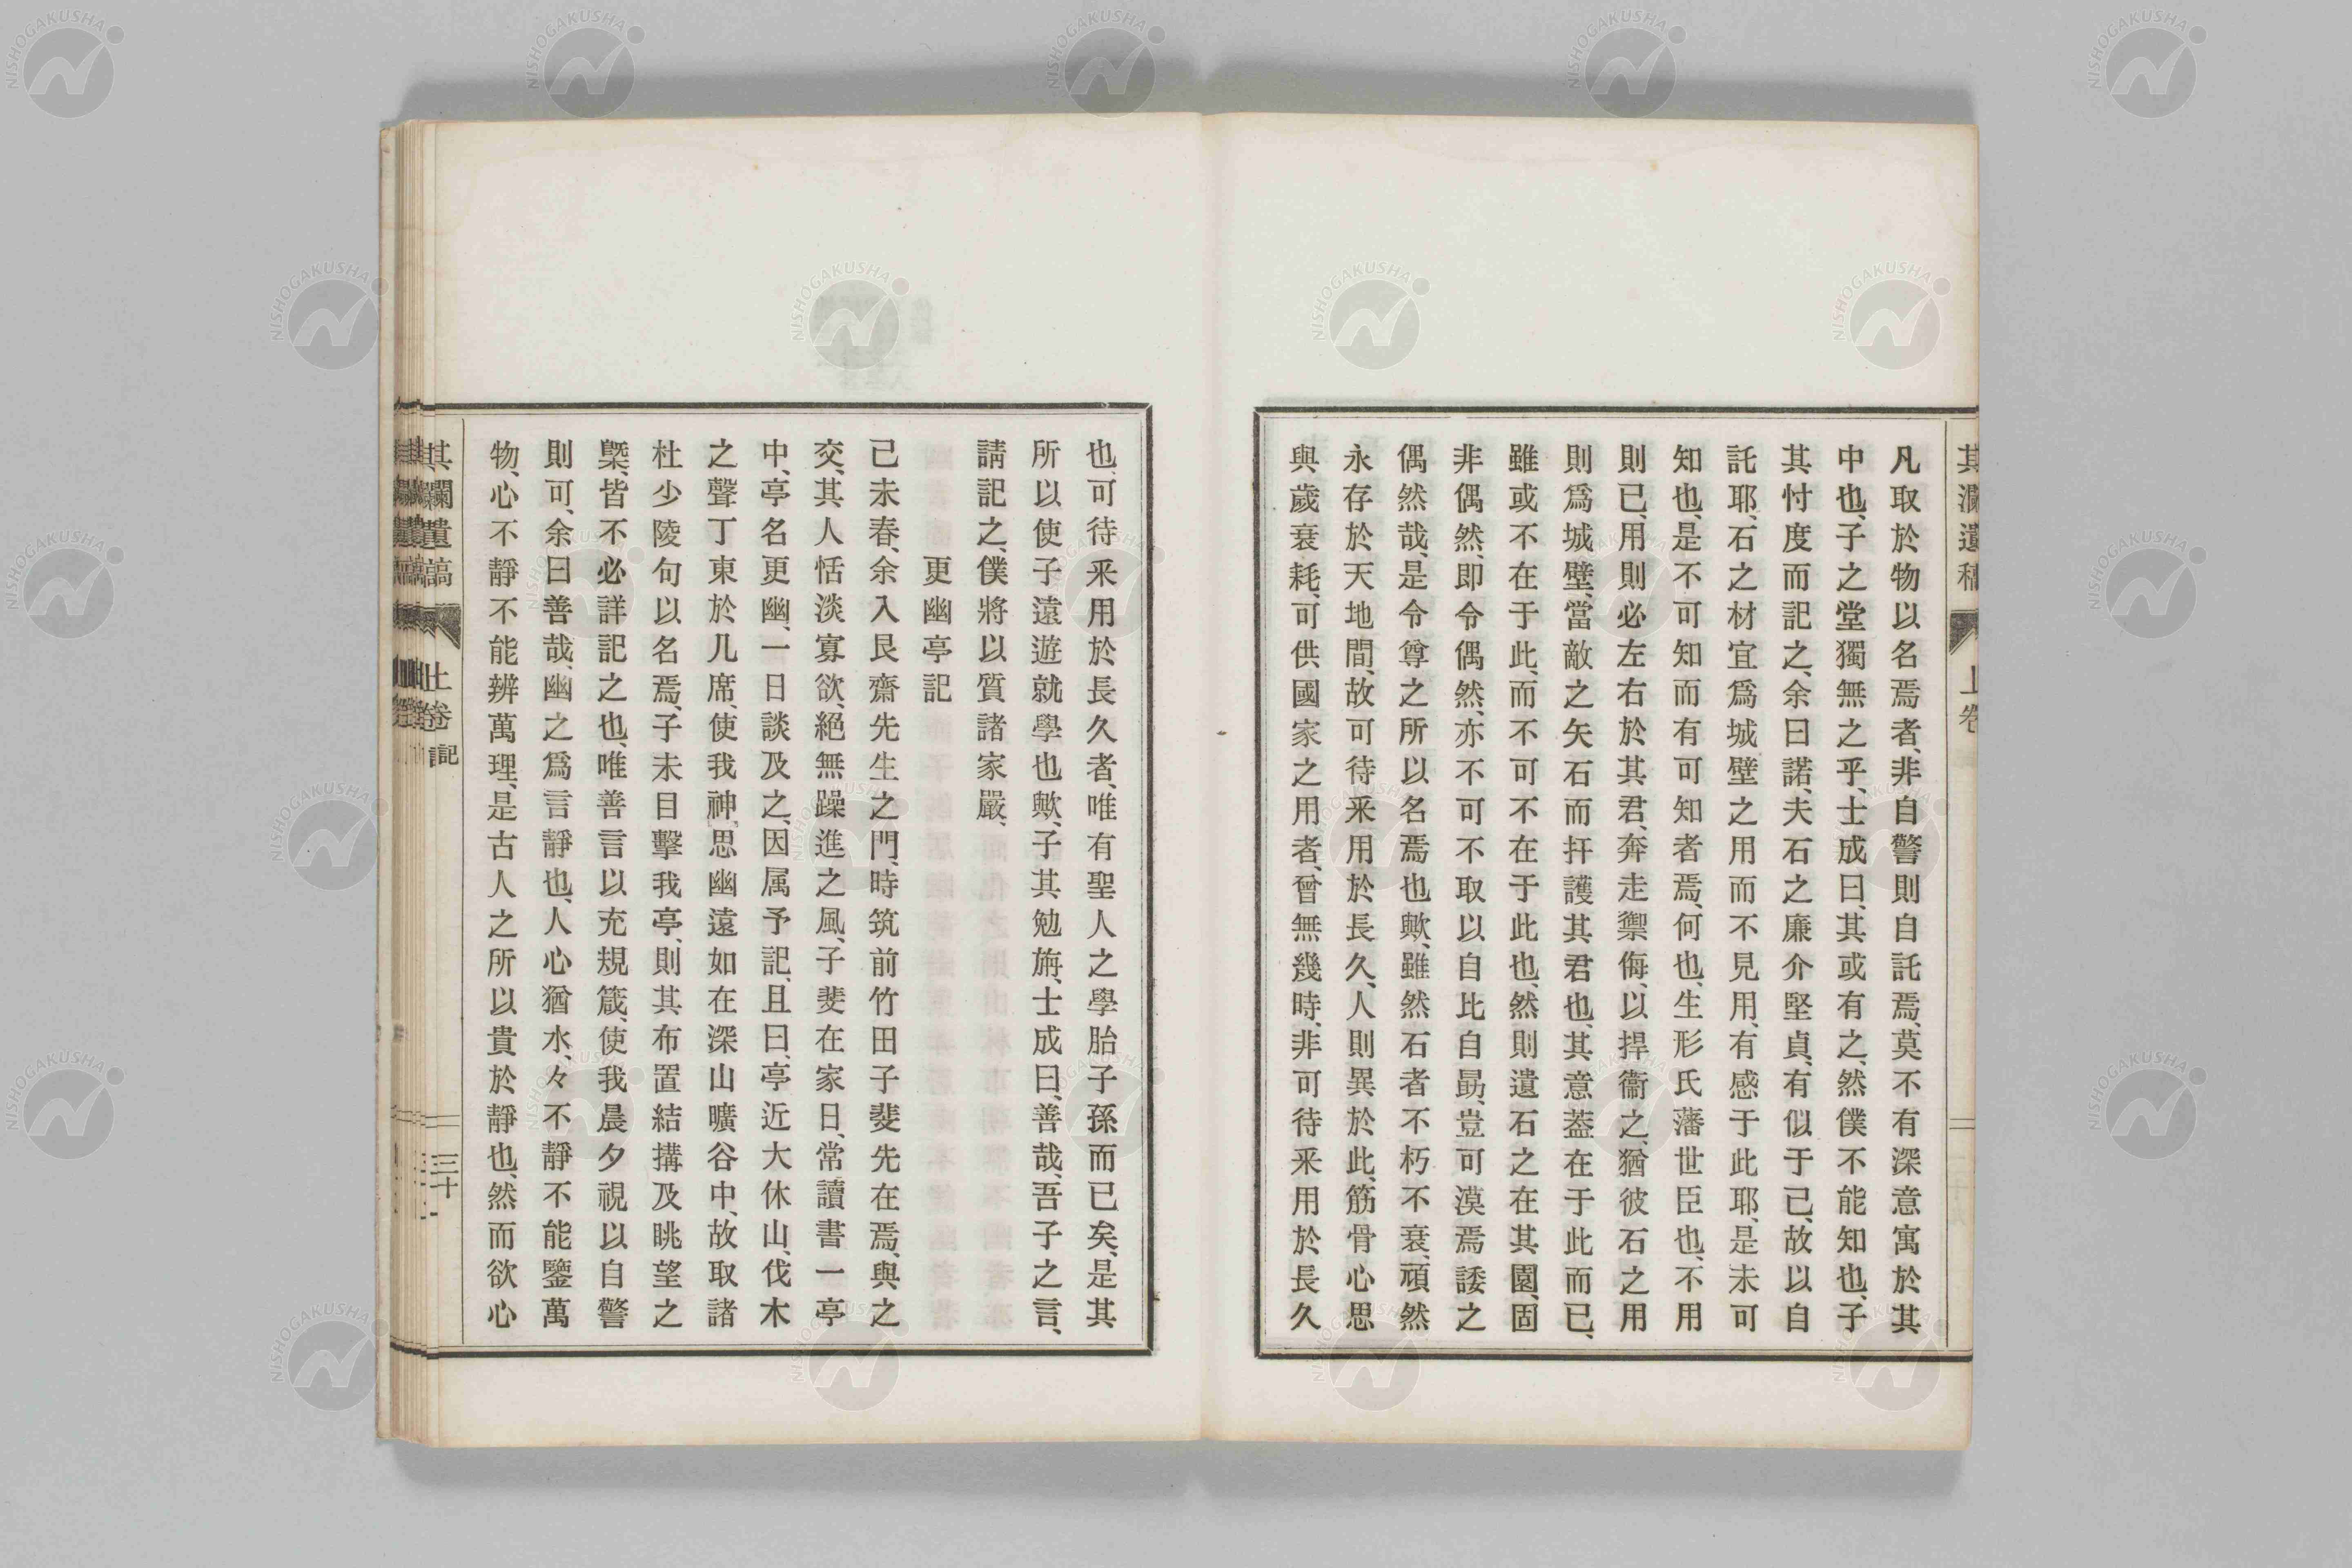 凡取於物以名焉者、非自警則自託焉、莫不有深意寓於其
中也、子之堂獨無之乎、士成曰、其或有之、然僕不能知也、子
其忖度而記之、余曰諾、夫石之廉介堅貞、有似于己、故以自
託耶、石之材宜爲城壁之用而不見用、有感于此耶、是未可
知也、是不可知而有可知者焉、何也、生形氏藩世臣也、不用
則已、用則必左右於其君、奔走禦侮、以捍衞之、猶彼石之用
則爲城壁、當敵之矢石而扞護其君也、其意蓋在于此而已、
雖或不在于此、而不可不在于此也、然則遺石之在其園、固
非偶然、即令偶然、亦不可不取以自比自勗、豈可漠焉諉之
偶然哉、是令尊之所以名焉也歟、雖然石者不朽不衰、頑然
永存於天地間、故可待釆用於長久、人則異於此、筋骨心思
與歲衰耗、可供國家之用者、曾無幾時、非可待釆用於長久
也、可待釆用於長久者、唯有聖人之學胎子孫而已矣、是其
所以使子遠遊就學也歟、子其勉旃、士成曰、善哉、吾子之言、
請記之、僕將以質諸家嚴、
更幽亭記
己未春、余入艮齋先生之門、時筑前竹田子斐先在焉、與之
交、其人恬淡寡欲、絕無躁進之風、子斐在家日、常讀書一亭
中、亭名更幽、一日談及之、因属予記、且曰、亭近大休山、伐木
之聲丁東於几席、使我神思幽遠如在深山曠谷中、故取諸
杜少陵句以名焉、子未目擊我亭、則其布置結搆及眺望之
槩、皆不必詳記之也、唯善言以充規箴、使我晨夕視以自警
則可、余曰善哉、幽之爲言靜也、人心猶水、々不靜不能鑒萬
物、心不靜不能辨萬理、是古人之所以貴於靜也、然而欲心
其瀾遺稿
上卷 記
三十一
NISHOGAKUSHA